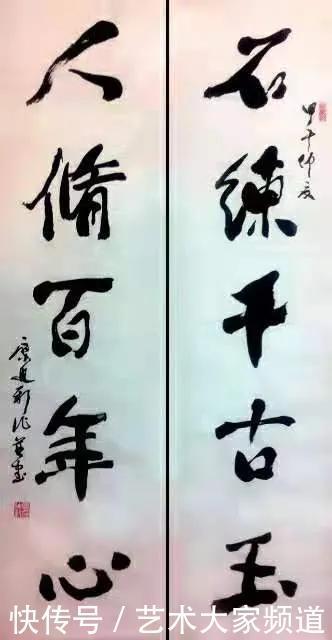 石練千古玉
甲午仲夏
人脩百年心
快传号 / 艺术大家频道